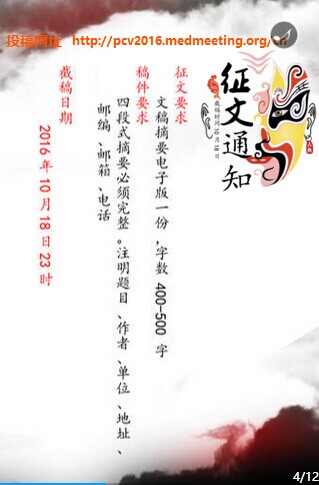 投稿网址 http://pcv2016.medmeeting.org/cn
征文通知
截稿时间10月18日
征文要求
文稿摘要电子版一份,字数 400-500 字
稿件要求
四段式摘要必须完整。注明题目、作者、单位、地址、
邮编、邮箱、电话
截稿日期
2016 年 10 月 18 日 23 时
4/12